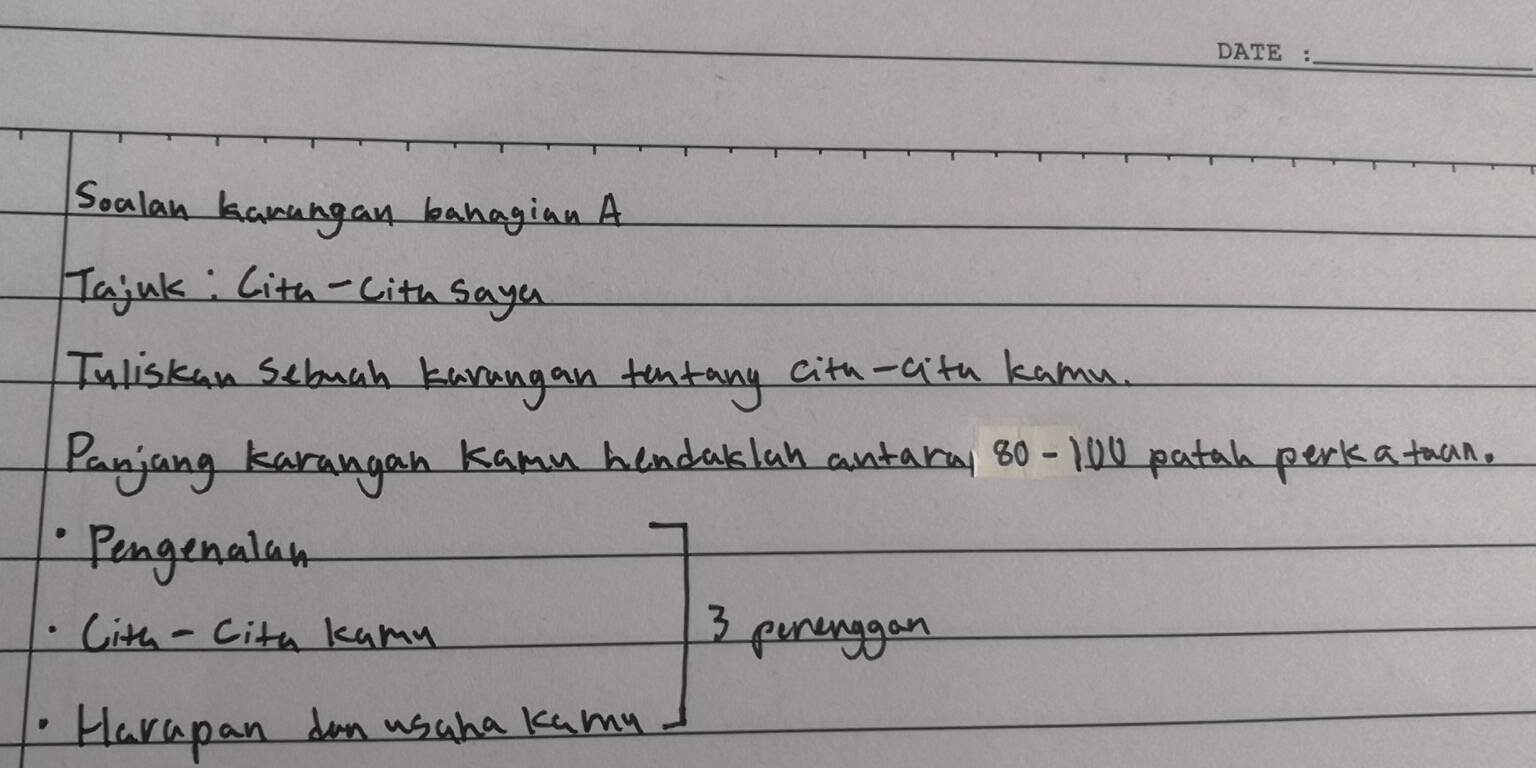 DATE :
Soalan karangan bahagian A
Tajuk : Cita - Cita saya
Tuliskan sebuah karangan tentang cita - cita kamu.
Panjang karangan kamu hendaklah antara 80 - 100 patah perkataan.
• Pengenalan
• Cita - Cita kamu
3 perenggan
• Harapan dan usaha kamu